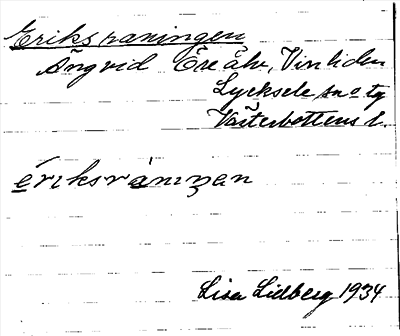 Eriksraningen
Ängvid Öreälv, Vinliden
Lycksele sn o tg
Västerbottens l.
ériksrànıŋan
Lisa Lidberg 1934